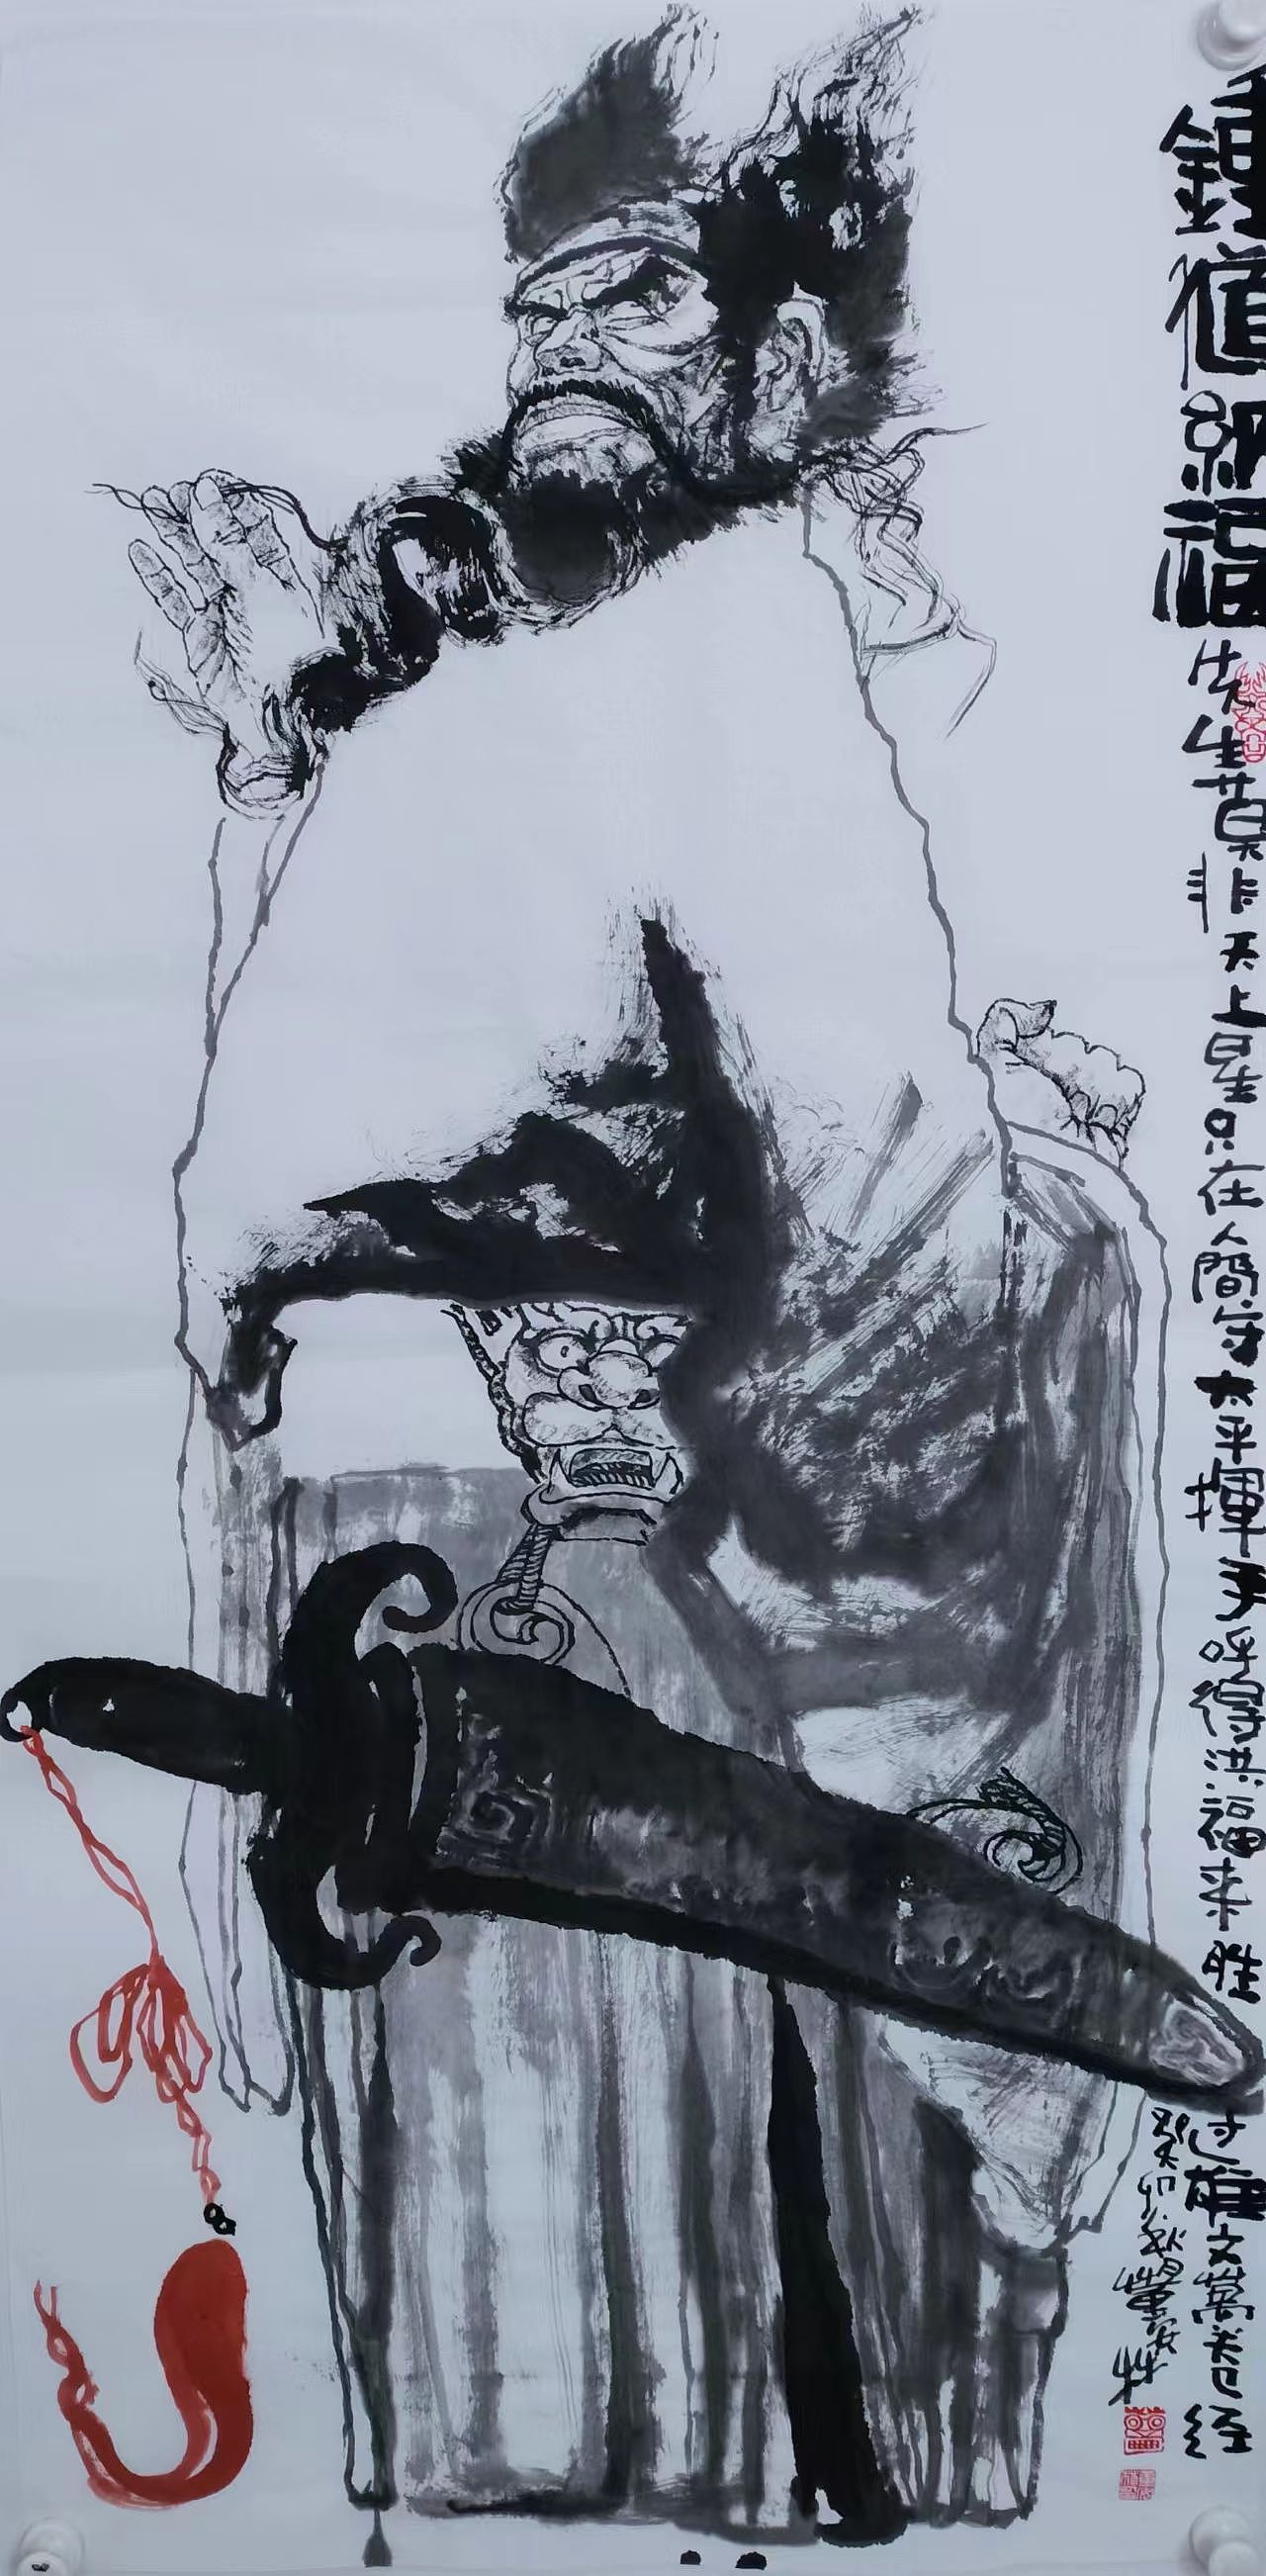 鍾馗納福
先生莫非天上星只在人間守太平揮手呼得洪福来胜过雄文萬卷经
癸卯秋月董安